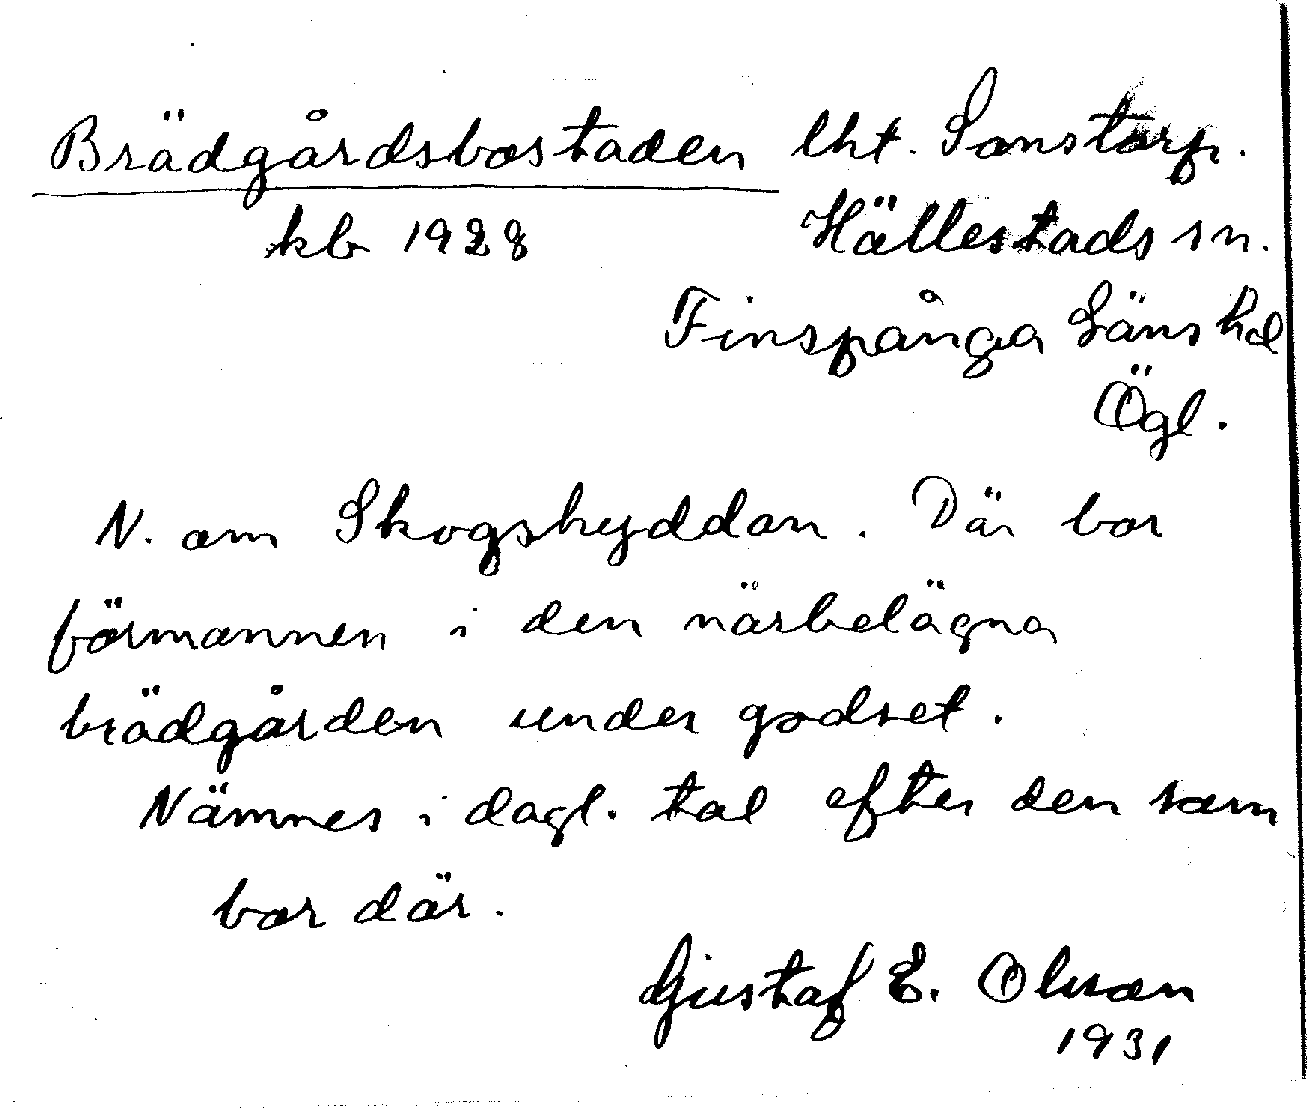 Brädgårdsbostaden lht. Sonstorp.
kb 1928 Hällestads sn.
Finspånga Läns hd
Ögl.
N. om Skogshyddan. Där bor
förmannen i den närbelägna
brädgården under godset.
Nämnes i dagl. tal efter den som
bor där.
Gustaf E. Olsson
1931